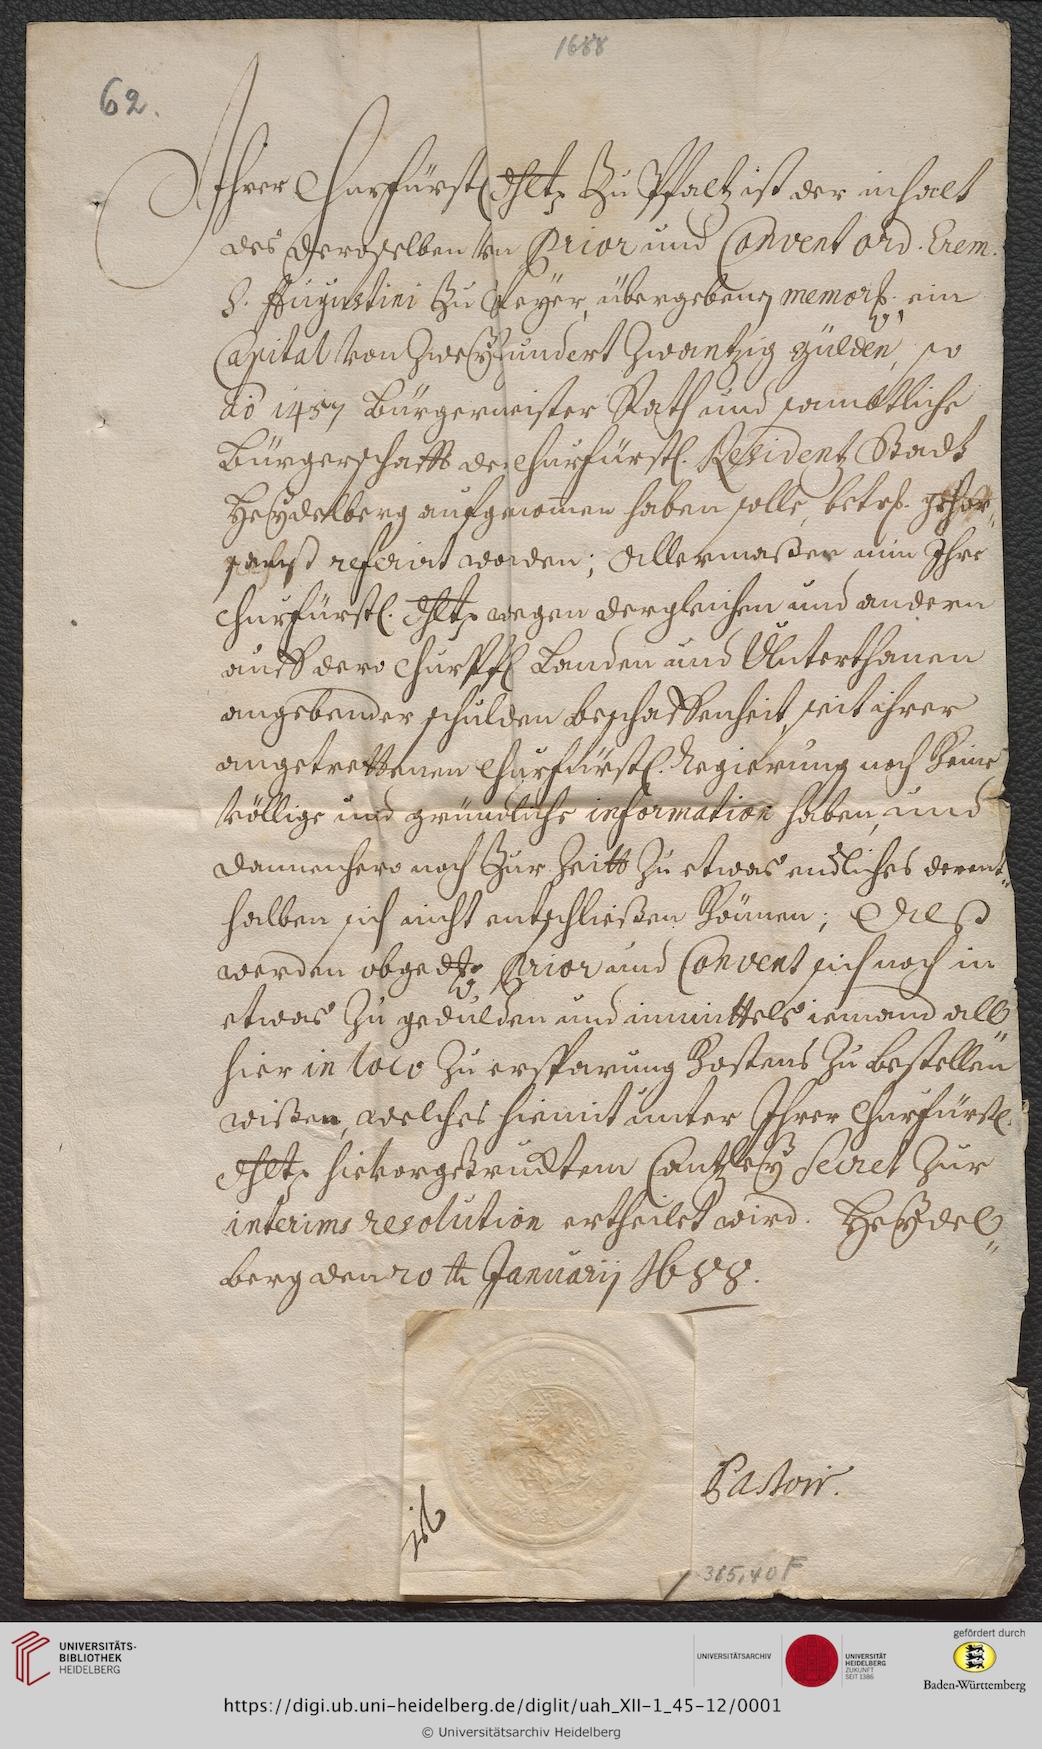 1688
62.
Ihrer Churfürstl. dhlt. zu Pfaltz ist der inhalt
des deroselben von Prior und Convent ord. Erem.
S. Augustini zu Speyer, übergebenen memorl. ein
Capital von Zweyhundert Zwantzig gülden, so
aō 1457 Bürgermeister Rath und sambtliche
Bürgerschafft der Churfürstl. Residentz Stadt
Heydelberg aufgenom̄en haben solle, betrf. gehor„
samst referirt worden; Allermaßen nun Ihre
Churfürstl. dhlt. wegen dergleichen und andern
auff dero Churpfl. Landen und Unterthanen
angebender schulden beschaffenheit, seit ihrer
angetrettenen Churfürstl. Regierung noch keine
völlige und gründliche information haben, und
dannenhero noch zur Zeitt zu etwas endliches derent„
halben sich nicht entschließen können; Alß
werden obgedte Prior und Convent sich noch in
etwas zu gedulden und inmittels iemand all„
hier in loco zu ersparung Kostens zu bestellen
wißen, welches hiemit unter Ihrer Churfürstl.
dhlt. hievorgetrucktem Cantzley Secret zur
interims resolution ertheilet wird. Heydel„
berg den 20ten Januarij 1688.
Pastoir.
385,40 F
UNIVERSITÄTS-
BIBLIOTHEK
HEIDELBERG
UNIVERSITÄTSARCHIV
UNIVERSITÄT
HEIDELBERG
ZUKUNFT
SEIT 1386
gefördert durch
Baden-Württemberg
https://digi.ub.uni-heidelberg.de/diglit/uah_XII-1_45-12/0001
© Universitätsarchiv Heidelberg